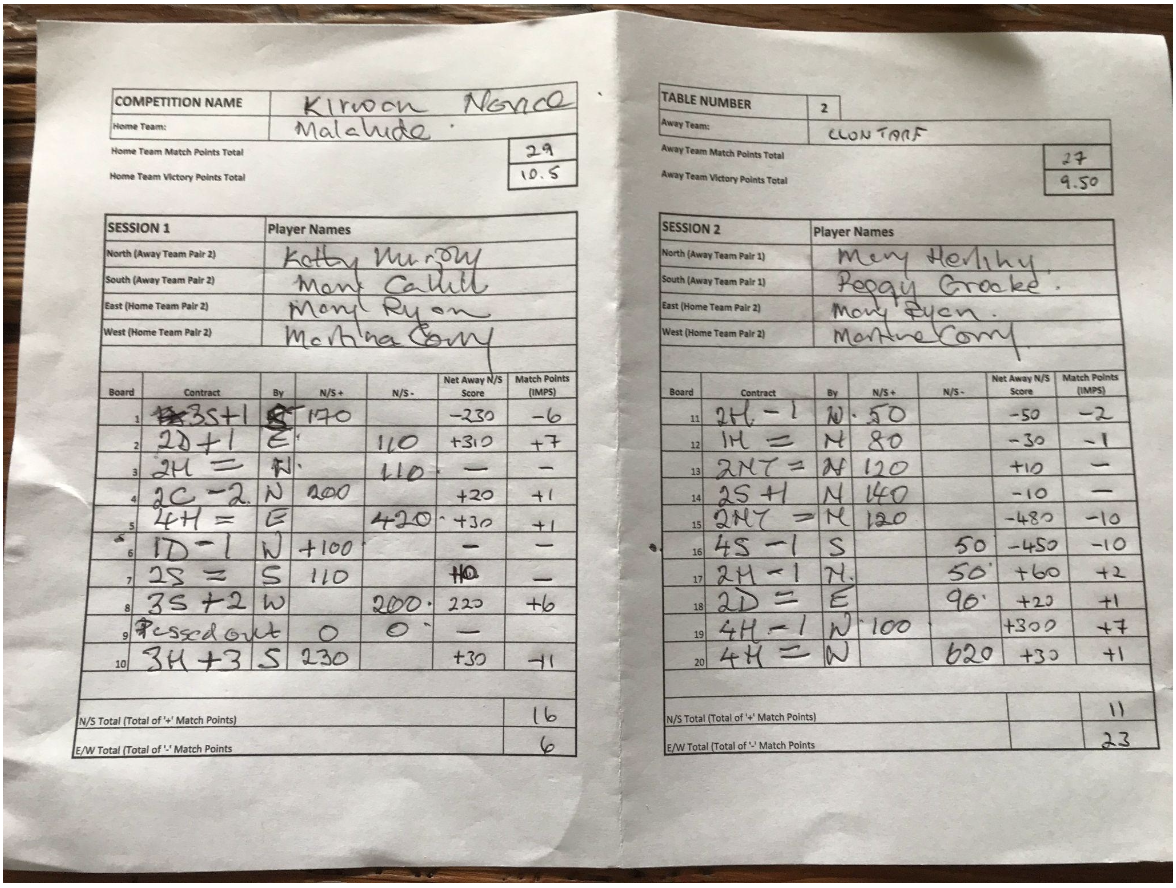 COMPETITION NAME Kirwan Novice
Home Team: Malahide
Home Team Match Points Total 29
Home Team Victory Points Total 10.5
SESSION 1 Player Names
North (Away Team Pair 2) Murphy
South (Away Team Pair 2) Cahill
East (Home Team Pair 2) Mary Ryan
West (Home Team Pair 2) Martina Corry
Board Contract By N/S + N/S - Net Away N/S Score Match Points (IMPS)
1 3S+1 170 -230 -6
2 2D+1 E 110 +310 +7
3 2H = W. 110 — —
4 2C -2 W 200 +20 +1
5 4H = E 420 +30 +1
6 1D -1 W +100 — —
7 2S = S 110 —
8 3S +2 W 200 220 +6
9 Passed out 0 0 —
10 3H +3 S 230 +30 +1
N/S Total (Total of '+' Match Points) 16
E/W Total (Total of '-' Match Points 6
TABLE NUMBER 2
Away Team: CLONTARF
Away Team Match Points Total 27
Away Team Victory Points Total 9.50
SESSION 2 Player Names
North (Away Team Pair 1) Mary Herlihy
South (Away Team Pair 1) Peggy Crocke.
East (Home Team Pair 2) Mary Ryan.
West (Home Team Pair 2) Martina Corry
Board Contract By N/S + N/S - Net Away N/S Score Match Points (IMPS)
11 2H -1 W. 50 -50 -2
12 1H = N 80 -30 -1
13 2NT = N 120 +10 —
14 2S +1 N 140 -10 —
15 2NT = N 120 -480 -10
16 4S -1 S 50 -450 -10
17 2H -1 N. 50 +60 +2
18 2D = E 90 +20 +1
19 4H -1 W 100 +300 +7
20 4H = W 620 +30 +1
N/S Total (Total of '+' Match Points) 11
E/W Total (Total of '-' Match Points 23